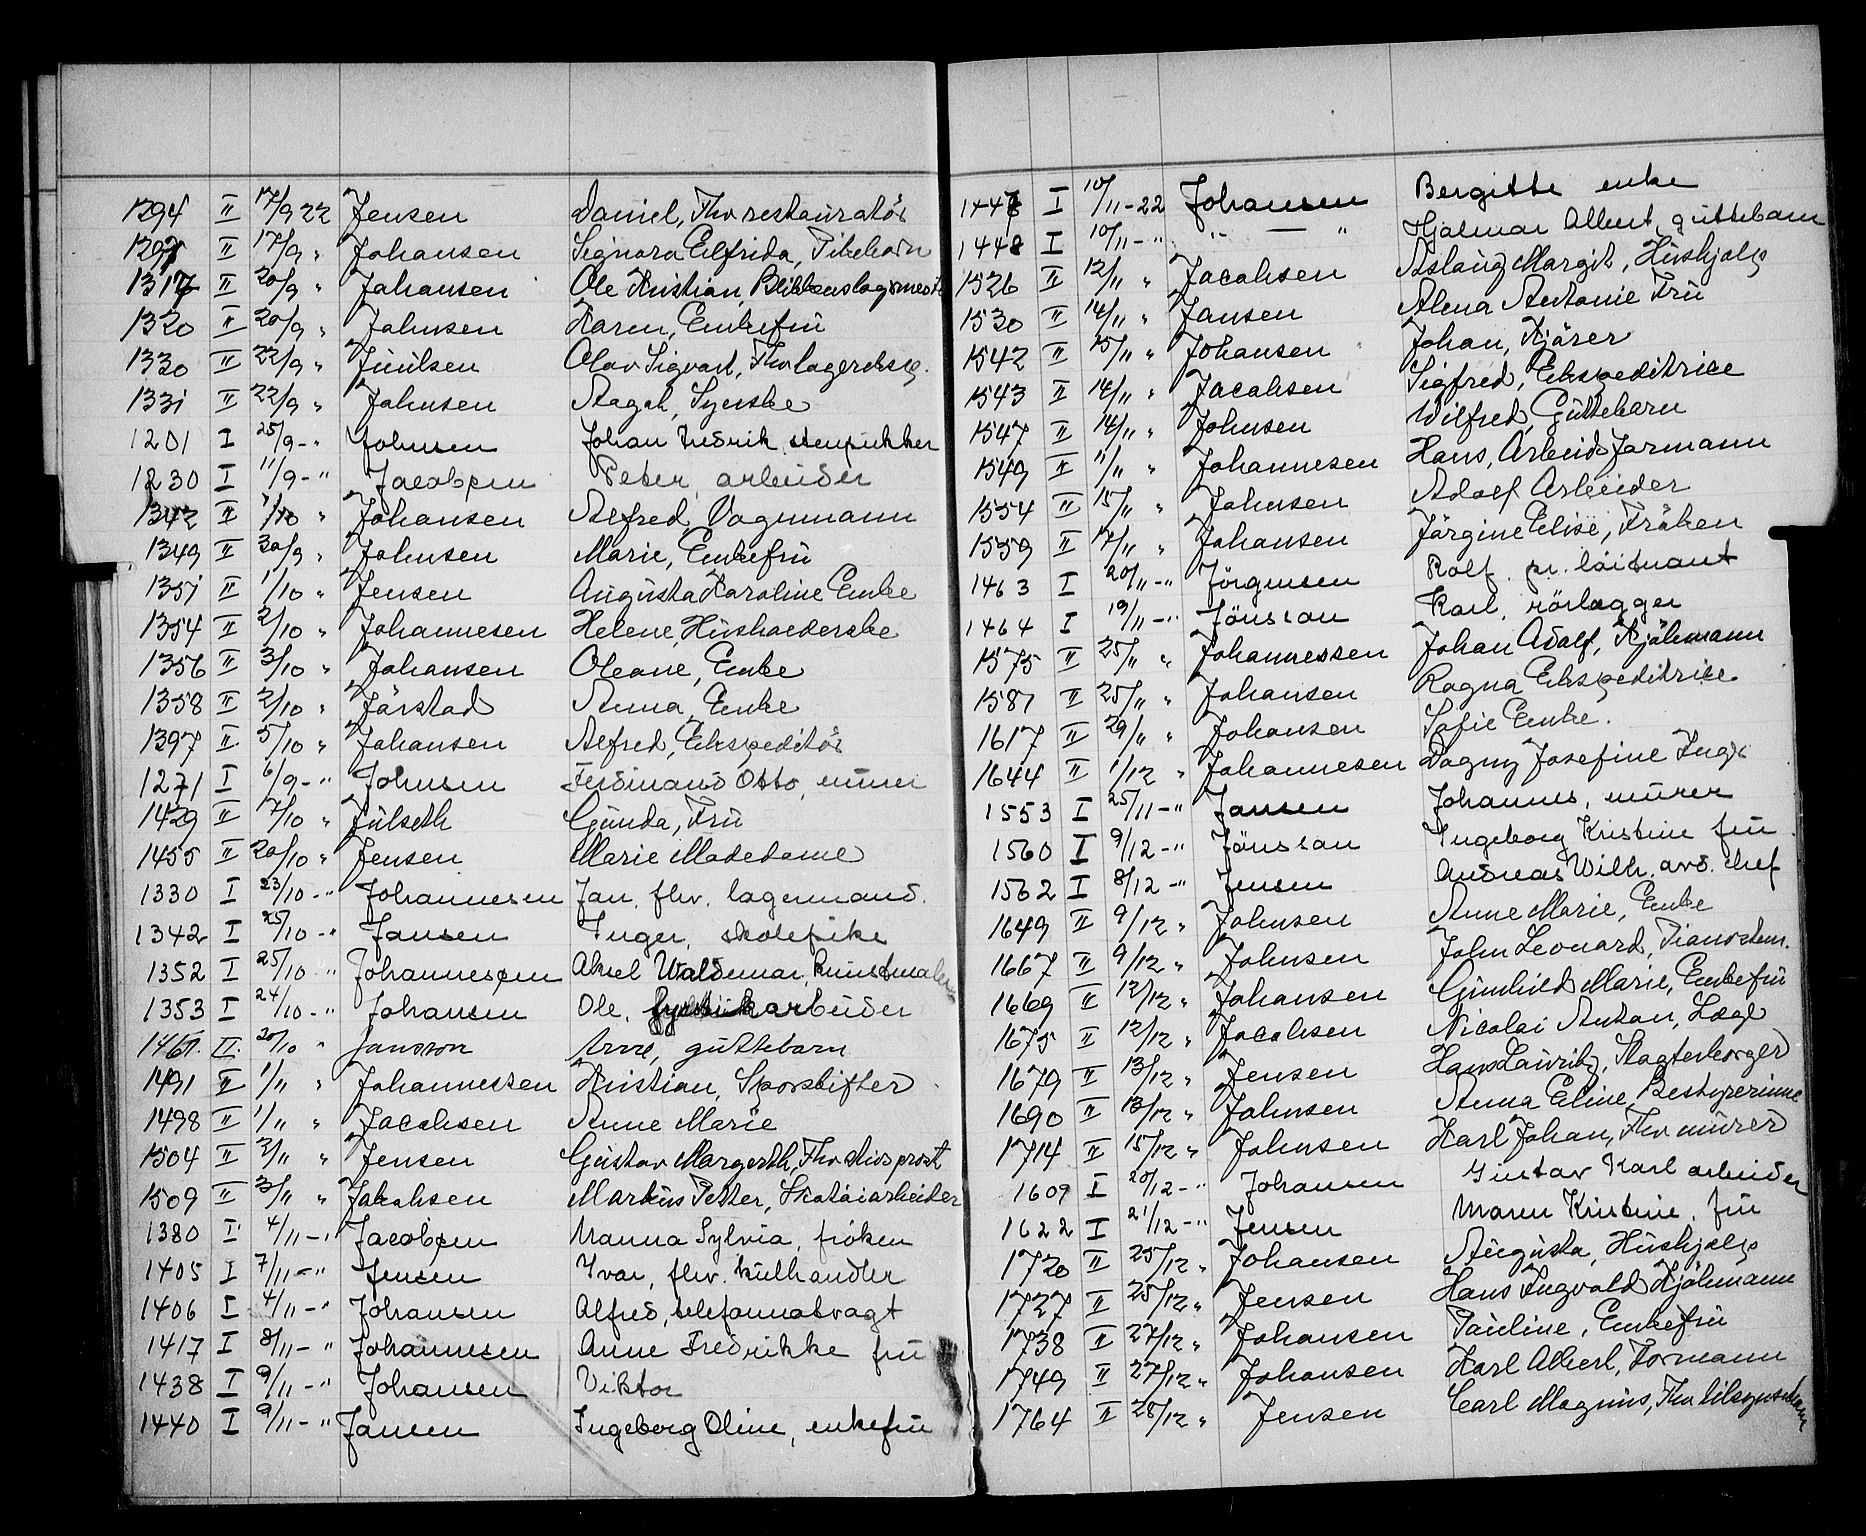 1294 II 17/9 22 Jensen Daniel, Fhv restauratør
1297 II 17/9 " Johansen Signora Elfrida, Pikebarn
1317 II 20/9 " Johansen Ole Kristian, Blikkenslagermest
1320 II 20/9 " Johnsen Karen, Enkefru
1330 II 22/9 " Juulsen Olav Sigvart, Fhv lagereksp.
1331 II 22/9 " Johnsen Aagot, Syerske
1201 I 25/9 - " Johnsen Johan Fredrik, stenpikker
1230 I 11/9 - " Jacobsen Peter, arbeider
1342 II 1/10 " Johansen Alfred, Vognmann
1349 II 30/9 " Johnsen Marie, Enkefru
1351 II 1/10 " Jensen Augusta Karoline Enke
1354 II 2/10 " Johannesen Helene, Husholderske
1356 II 3/10 " Johansen Oleane, Enke
1358 II 2/10 " Jørstad Anna, Enke
1397 II 5/10 " Johansen Alfred, Ekspeditør
1271 I 6/9 - " Johnsen Ferdinand Otto, murer
1429 II 17/10 " Julseth Gunda, Fru
1455 II 20/10 " Jensen Marie Madedame
1330 I 23/10 - " Johannesen Jan, fhv. lagermand.
1342 I 25/10 - " Jansen Inger, skolepike
1352 I 25/10 - " Johannessen Aksel Waldemar, kunstmaler
1353 I 24/10 - " Johansen Ole, arbeider
1461. II. 20/10 " Jansson Arne, guttebarn
1491 II 1/11 " Johannessen Kristian, Sporskifter
1498 II 1/11 " Jacobsen Anne Marie
1504 II 2/11 " Jensen Gustav Margerth, Fhv
1509 II 3/11 " Jakobsen Markus Petter, Skotøiarbeider
1380 I 4/11 - " Jacobsen Nanna Sylvia, frøken
1405 I 7/11 - " Jensen Ivar, fhv. kulhandler
1406 I 4/11 - " Johansen Alfred, telefonnatvagt
1417 I 8/11 - " Johannesen Anne Fredrikke fru
1438 I 9/11 - " Johansen Viktor
1440 I 9/11 - " Jansen Ingeborg Oline, enkefru
1447 I 10/11 - 22 Johansen Bergitte enke
1448 I 10/11 - " " — " Hjalmar Albert, guttebarn
1526 II 12/11 " Jacobsen Aslaug Margit, Hushjelp
1530 II 14/11 " Jansen Alma Antonie Fru
1542 II 15/11 " Johansen Johan, Kjører
1543 II 14/11 " Jacobsen Sigfred, Ekspeditrice
1547 II 14/11 " Johnsen Wilfred, Guttebarn
1549 II 11/11 " Johannesen Hans, Arbeidsformann
1554 II 15/11 " Johnsen Adolf Arbeider
1559 II 17/11 " Johansen Jørgine Elise, Frøken
1463 I 20/11 - " Jörgensen Rolf, pr. løitnant
1464 I 19/11 - " Jönsson Karl, rörlægger
1575 II 25/11 " Johannessen Johan Adolf, Kjøbmann
1587 II 25/11 " Johansen Ragna Ekspeditrice
1617 II 29/11 " Johansen Sofie Enke.
1644 II 1/12 " Johannesen Dagny Josefine
1553 I 25/11 - " Jansen Johannes, murer
1560 I 9/12 - " Jönsson Ingeborg Kristine fru
1562 I 8/12 - " Jensen Andreas Wilh. avd. chef
1649 II 9/12 " Johnsen Anne Marie, Enke
1667 II 9/12 " Johnsen John Leonard, Pianostem.
1669 II 12/12 " Johansen Gunhild Marie, Enkefru
1675 II 12/12 " Jacobsen Nicolai Anton, Læge
1679 II 13/12 " Jensen Hans Lauritz, Slagterborger
1690 II 13/12 " Johnsen Anna Eline, Bestyrerinne
1714 II 15/12 " Johnsen Karl Johan, Fhv murer
1609 I 20/12 - " Johansen Gustav Karl arbeider
1622 I 21/12 - " Jensen Maren Kristine, fru
1720 II 25/12 " Johansen Augusta, Hushjelp
1727 II 25/12 " Jensen Hans Ingvald Kjøbmann
1738 II 27/12 " Johansen Pauline, Enkefru
1749 II 27/12 " Johansen Karl Albert, Formann
1764 II 28/12 " Jensen Carl Magnus, Fhv